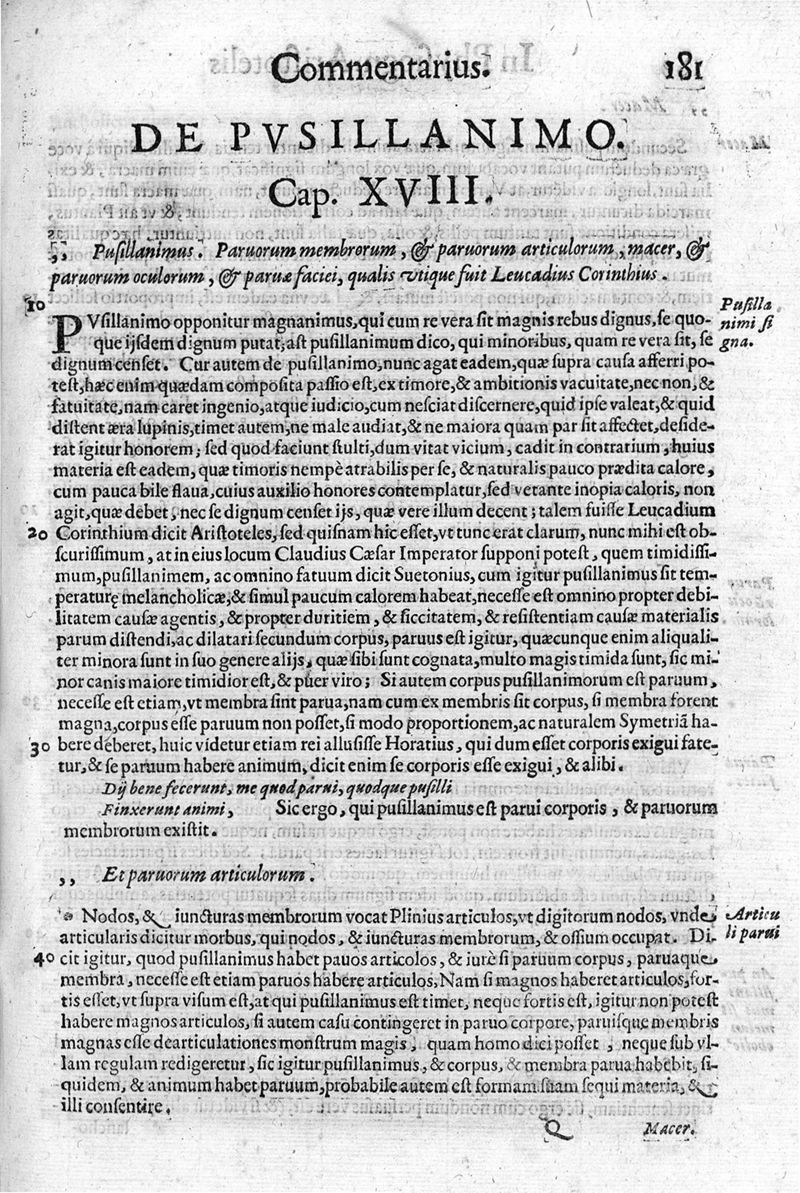 Commentarius. 181
DE PVSILLANIMO.
Cap. XVIII.
,, Pusillanimus. Paruorum membrorum, & paruorum articulorum, macer, &
paruorum oculorum, & paruæ faciei, qualis vtique fuit Leucadius Corinthius.
10
PVsillanimo opponitur magnanimus, qui cum re vera sit magnis rebus dignus, se quo-
que ijsdem dignum putat, ast pusillanimum dico, qui minoribus, quam re vera sit, se
dignum censet. Cur autem de pusillanimo, nunc agat eadem, quæ supra causa afferri po-
test, hæc enim quædam composita passio est, ex timore, & ambitionis vacuitate, nec non, &
fatuitate, nam caret ingenio, atque iudicio, cum nesciat discernere, quid ipse valeat, & quid
distent æra lupinis, timet autem, ne male audiat, & ne maiora quam par sit affectet, deside-
rat igitur honorem; sed quod faciunt stulti, dum vitat vicium, cadit in contrarium, huius
materia est eadem, quæ timoris nempè atrabilis per se, & naturalis pauco prædita calore,
cum pauca bile flaua, cuius auxilio honores contemplatur, sed vetante inopia caloris, non
agit, quæ debet, nec se dignum censet ijs, quæ vere illum decent; talem fuisse Leucadium
20 Corinthium dicit Aristoteles, sed quisnam hic esset, vt tunc erat clarum, nunc mihi est ob-
scurissimum, at in eius locum Claudius Cæsar Imperator supponi potest, quem timidissi-
mum, pusillanimem, ac omnino fatuum dicit Suetonius, cum igitur pusillanimus sit tem-
peraturę melancholicæ, & simul paucum calorem habeat, necesse est omnino propter debi-
litatem causæ agentis, & propter duritiem, & siccitatem, & resistentiam causæ materialis
parum distendi, ac dilatari secundum corpus, paruus est igitur, quæcunque enim aliquali-
ter minora sunt in suo genere alijs, quæ sibi sunt cognata, multo magis timida sunt, sic mi-
nor canis maiore timidior est, & puer viro; Si autem corpus pusillanimorum est paruum,
necesse est etiam, vt membra sint parua, nam cum ex membris sit corpus, si membra forent
magna, corpus esse paruum non posset, si modo proportionem, ac naturalem Symetriã ha-
30 bere deberet, huic videtur etiam rei allusisse Horatius, qui dum esset corporis exigui fate-
tur, & se paruum habere animum, dicit enim se corporis esse exigui, & alibi.
Dij bene fecerunt, me quod parui, quodque pusilli
Finxerunt animi, Sic ergo, qui pusillanimus est parui corporis, & paruorum
membrorum existit.
,, Et paruorum articulorum.
Nodos, & iuncturas membrorum vocat Plinius articulos, vt digitorum nodos, vnde
articularis dicitur morbus, qui nodos, & iuncturas membrorum, & ossium occupat. Di-
40 cit igitur, quod pusillanimus habet pauos articolos, & iurè si paruum corpus, paruaque
membra, necesse est etiam paruos habere articulos, Nam si magnos haberet articulos, for-
tis esset, vt supra visum est, at qui pusillanimus est timet, neque fortis est, igitur non potest
habere magnos articulos, si autem casu contingeret in paruo corpore, paruisque membris
magnas esse dearticulationes monstrum magis, quam homo dici posset, neque sub vl-
lam regulam redigeretur, sic igitur pusillanimus, & corpus, & membra parua habebit, si-
quidem, & animum habet paruum, probabile autem est formam suam sequi materia, &
illi consentire.
Q Macer.
Pusilla
nimi si
gna.
Articu
li parui